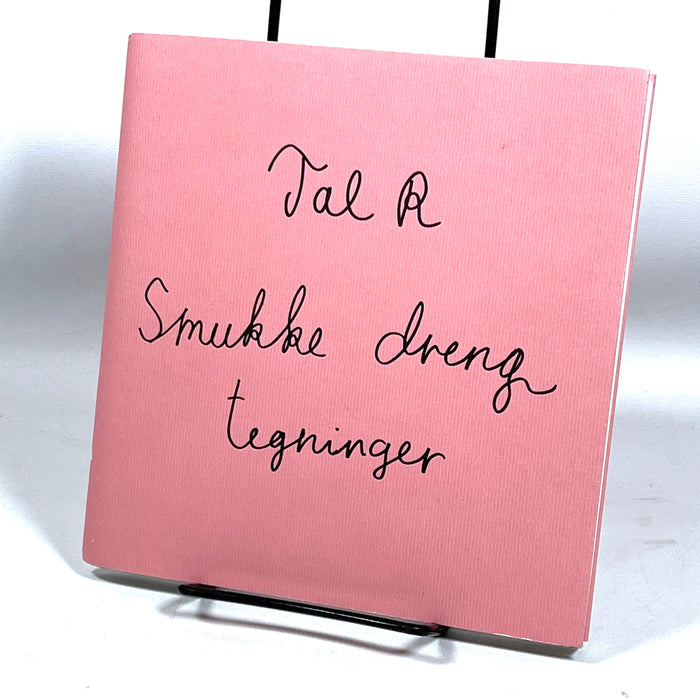 Tal R
Smukke dreng
tegninger